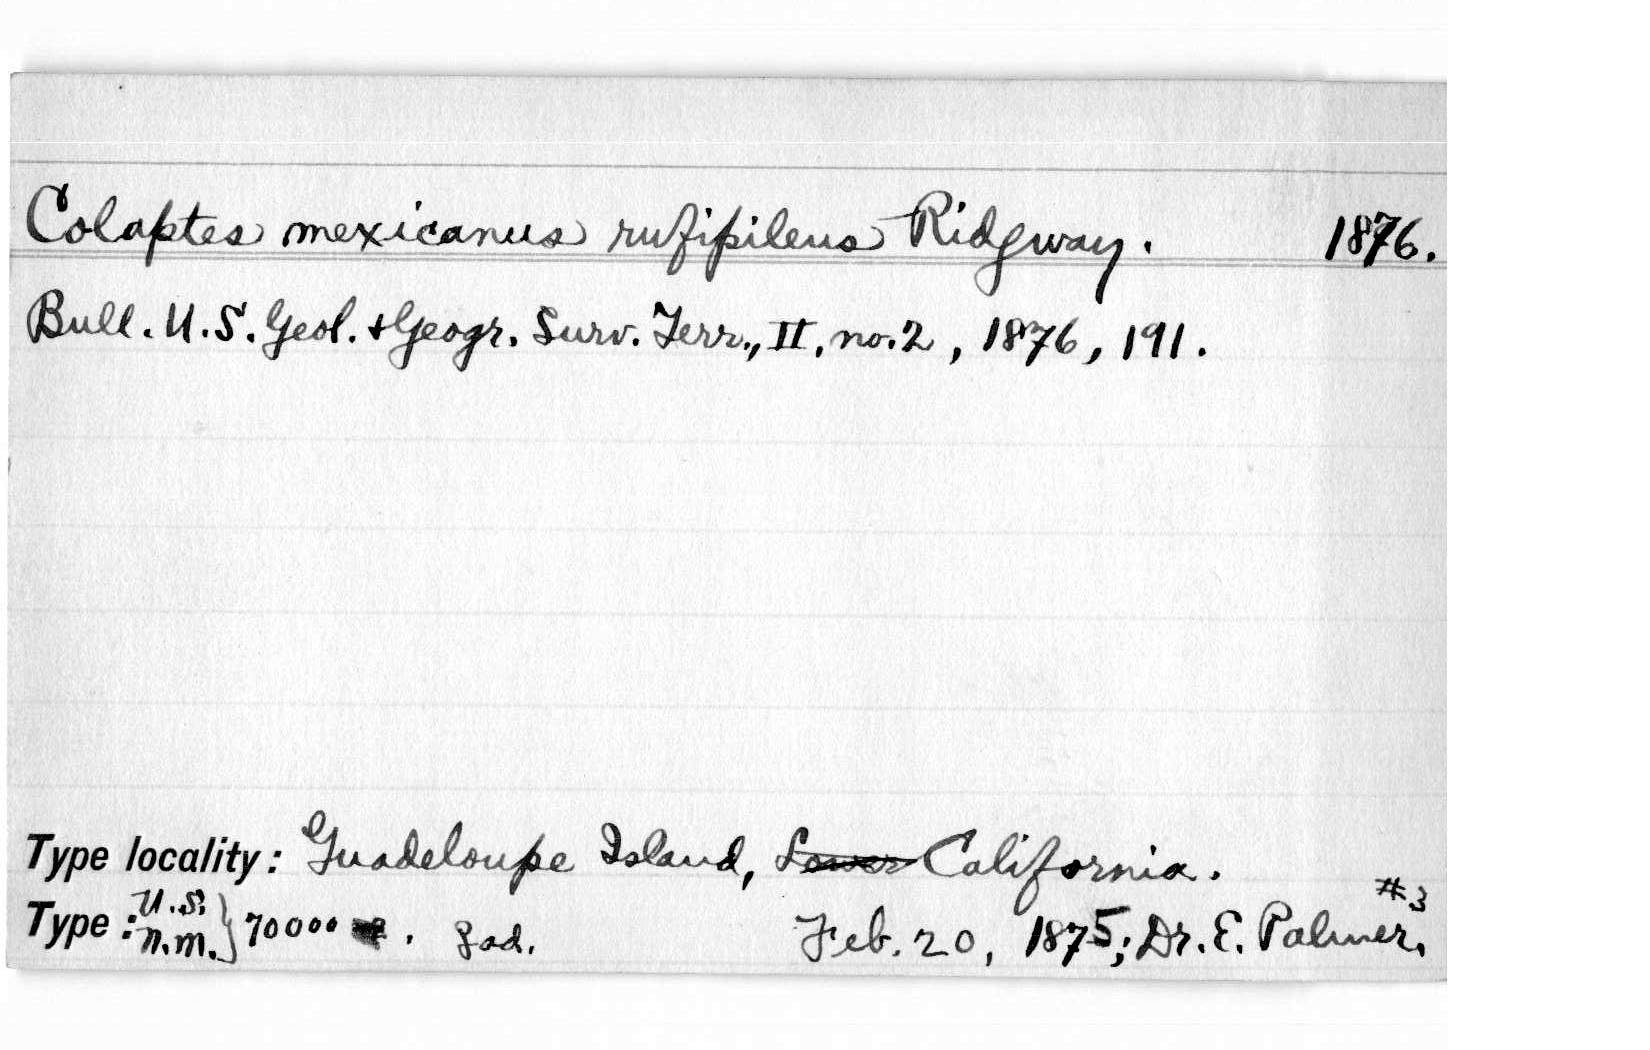 Colaptes mexicanus rufipileus Ridgway. 1876.
Bull. U.S. Geol. + Geogr. Surv. Terr., II, no. 2, 1876, 191.
Type locality: Guadeloupe Island, Lower California.
Type: U.S. N.M.} 70000. ad. Feb. 20, 1875; Dr. E. Palmer, #3